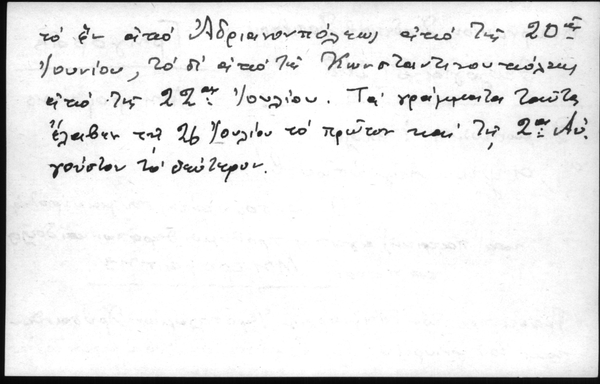 τὸ ἓν ἀπὸ Ἀδριανουπόλεως ἀπὸ τῆς 20ης
Ἰουνίου, τὸ δὲ ἀπὸ τῆς Κωνσταντινουπόλεως
ἀπὸ τῆς 22ας Ἰουλίου. Τὰ γράμματα ταῦτα
ἔλαβεν τῇ 26 Ἰουλίου τὸ πρῶτον καὶ τῆς 2ας Αὐ-
γούστου τὸ δεύτερον.